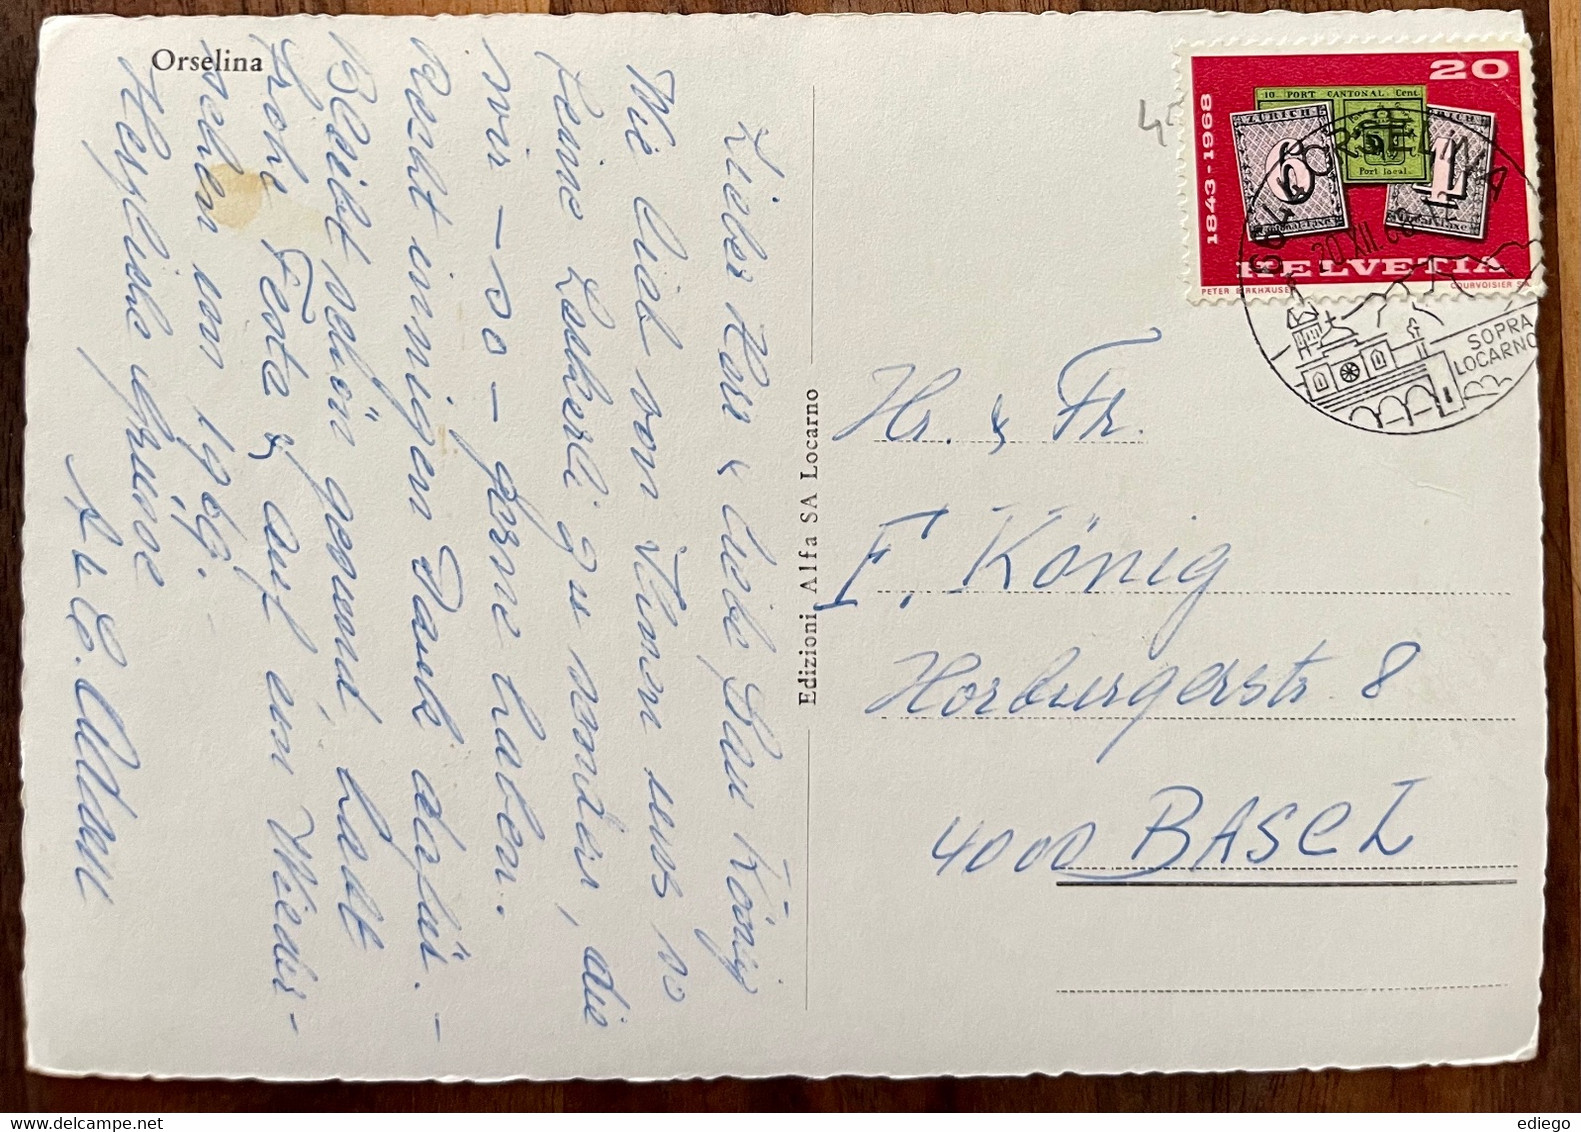 Orselina
Lieber Herr & liebe Frau König
Wie lieb von Ihnen uns so
feine Leckerli zu senden, die
wir – so – gerne haben.
Recht innigen Dank dafür. –
Bleibt schön gesund, habt
frohe Festa & auf ein Wieder-
sehen im 1969.
Herzliche Grüsse
A & E. Adam
Edizioni Alfa SA Locarno
20
1843-1968
10 PORT CANTONAL Cent.
ZÜRICH
ZÜRICH
Port local.
6
4
HELVETIA
PETER BIRKHÄUSER
COURVOISIER SA
ORSELINA
20.XII.68
SOPRA
LOCARNO
Hr. & Fr.
F. König
Horburgerstr. 8
4000 BASEL
ediego